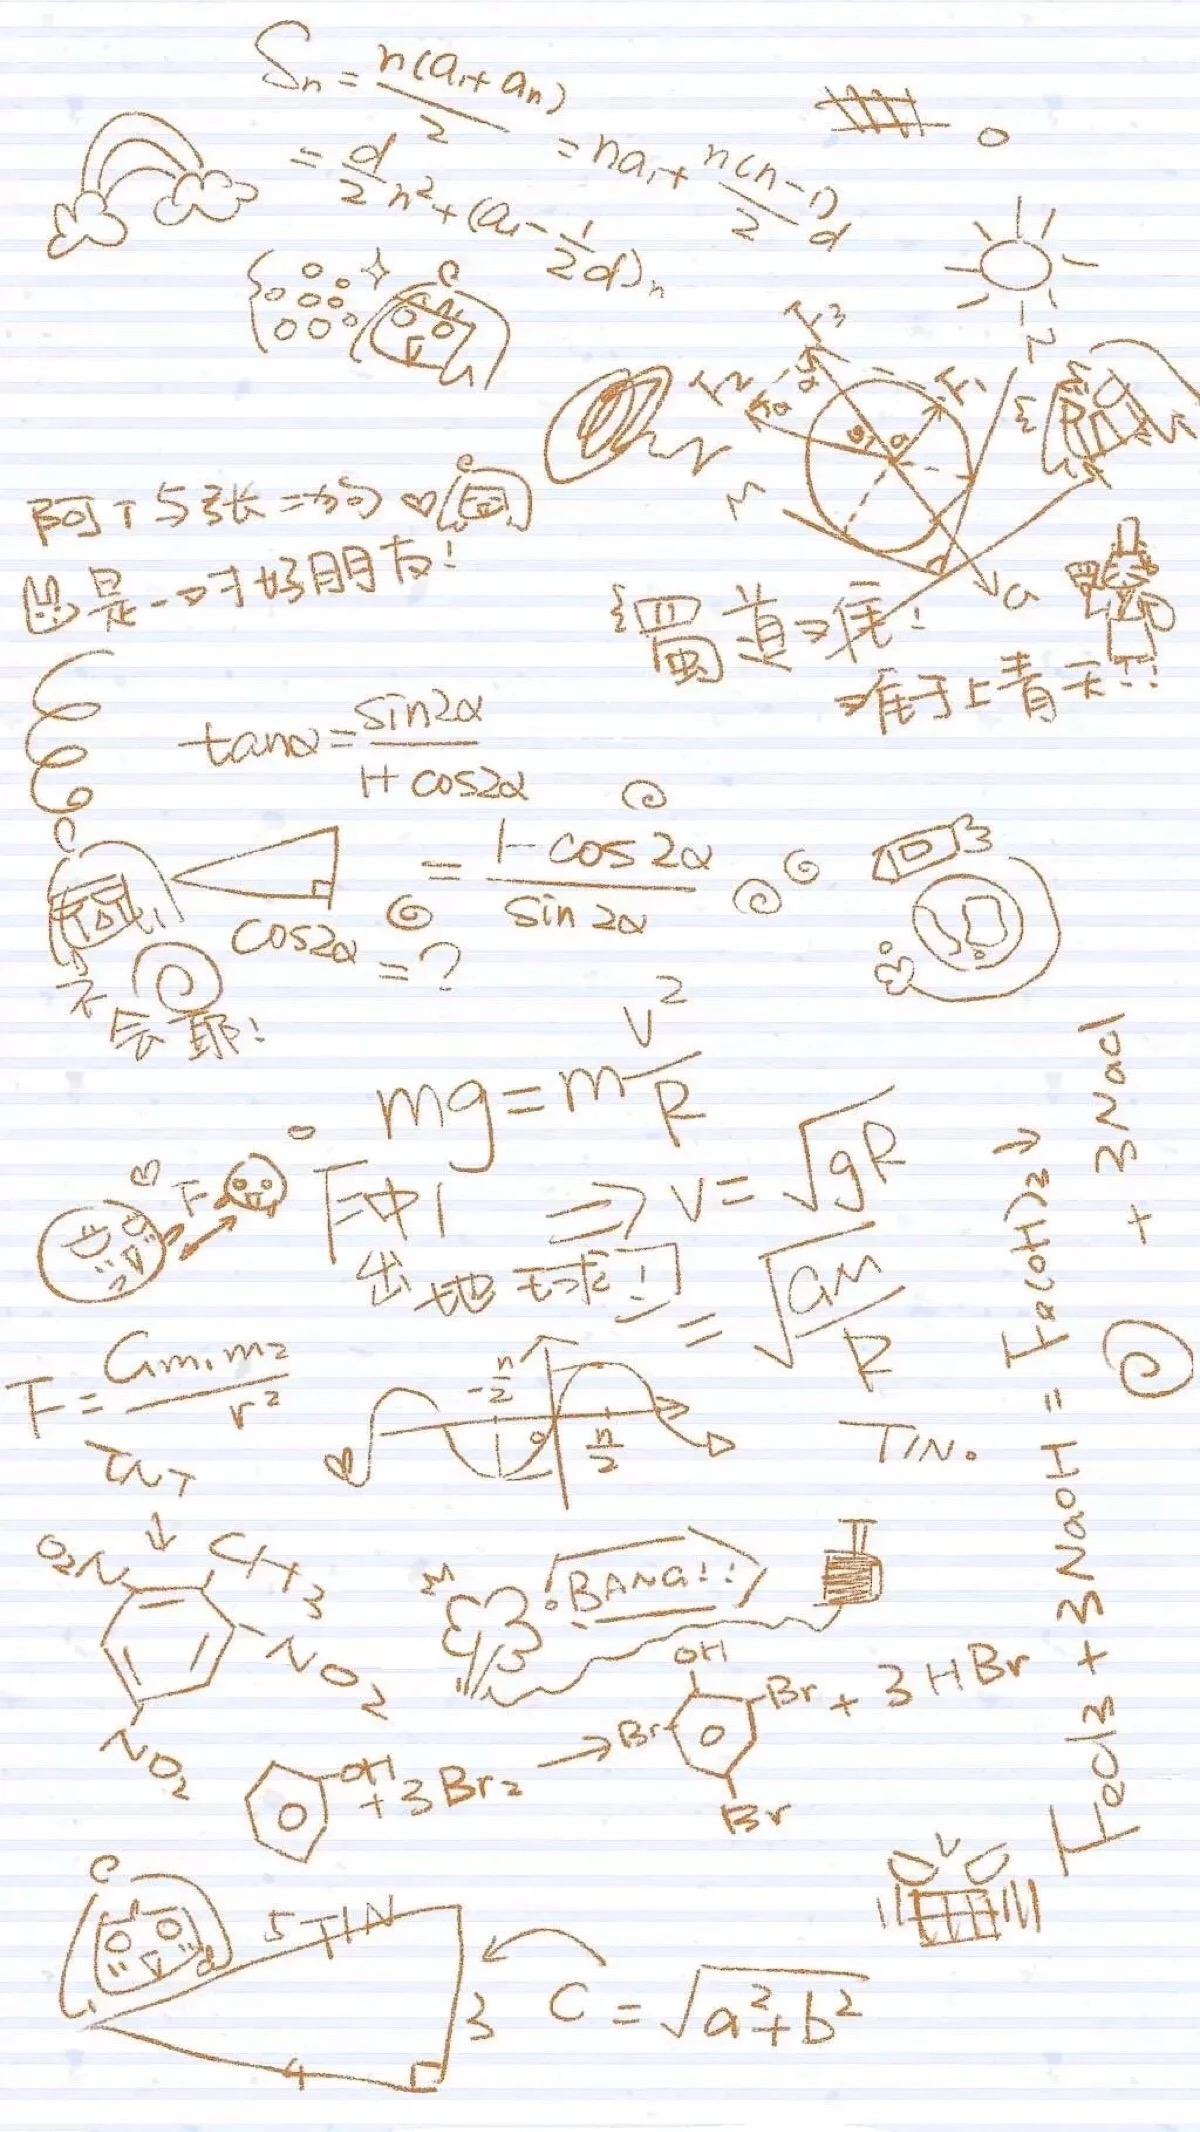 Sn = n(a₁+an)/2 = na₁ + n(n-1)/2 d
= d/2 n² + (a₁ - 1/2 d)n
F₃
F₂
F₁
阿T与张二狗
是一对好朋友!
蜀道难!
难于上青天!!
G
tanα = sin2α/(1+cos2α)
= (1-cos2α)/sin2α
cos2α = ?
不会耶!
mg = m v²/R
⇒ v = √gR
= √(GM/R)
F
「冲出地球!」
F = Gm₁m₂/r²
-π/2
0
π/2
TIN.
TNT
↓
O₂N
CH₃
NO₂
NO₂
BANG!!
OH + 3Br₂ → OH Br Br Br + 3HBr
FeCl₃ + 3NaOH = Fe(OH)₃↓ + 3NaCl
5 TIN
3
4
C = √(a²+b²)